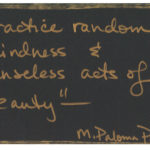 ractice random
indness &
nseless acts of
eauty"—
M. Paloma P